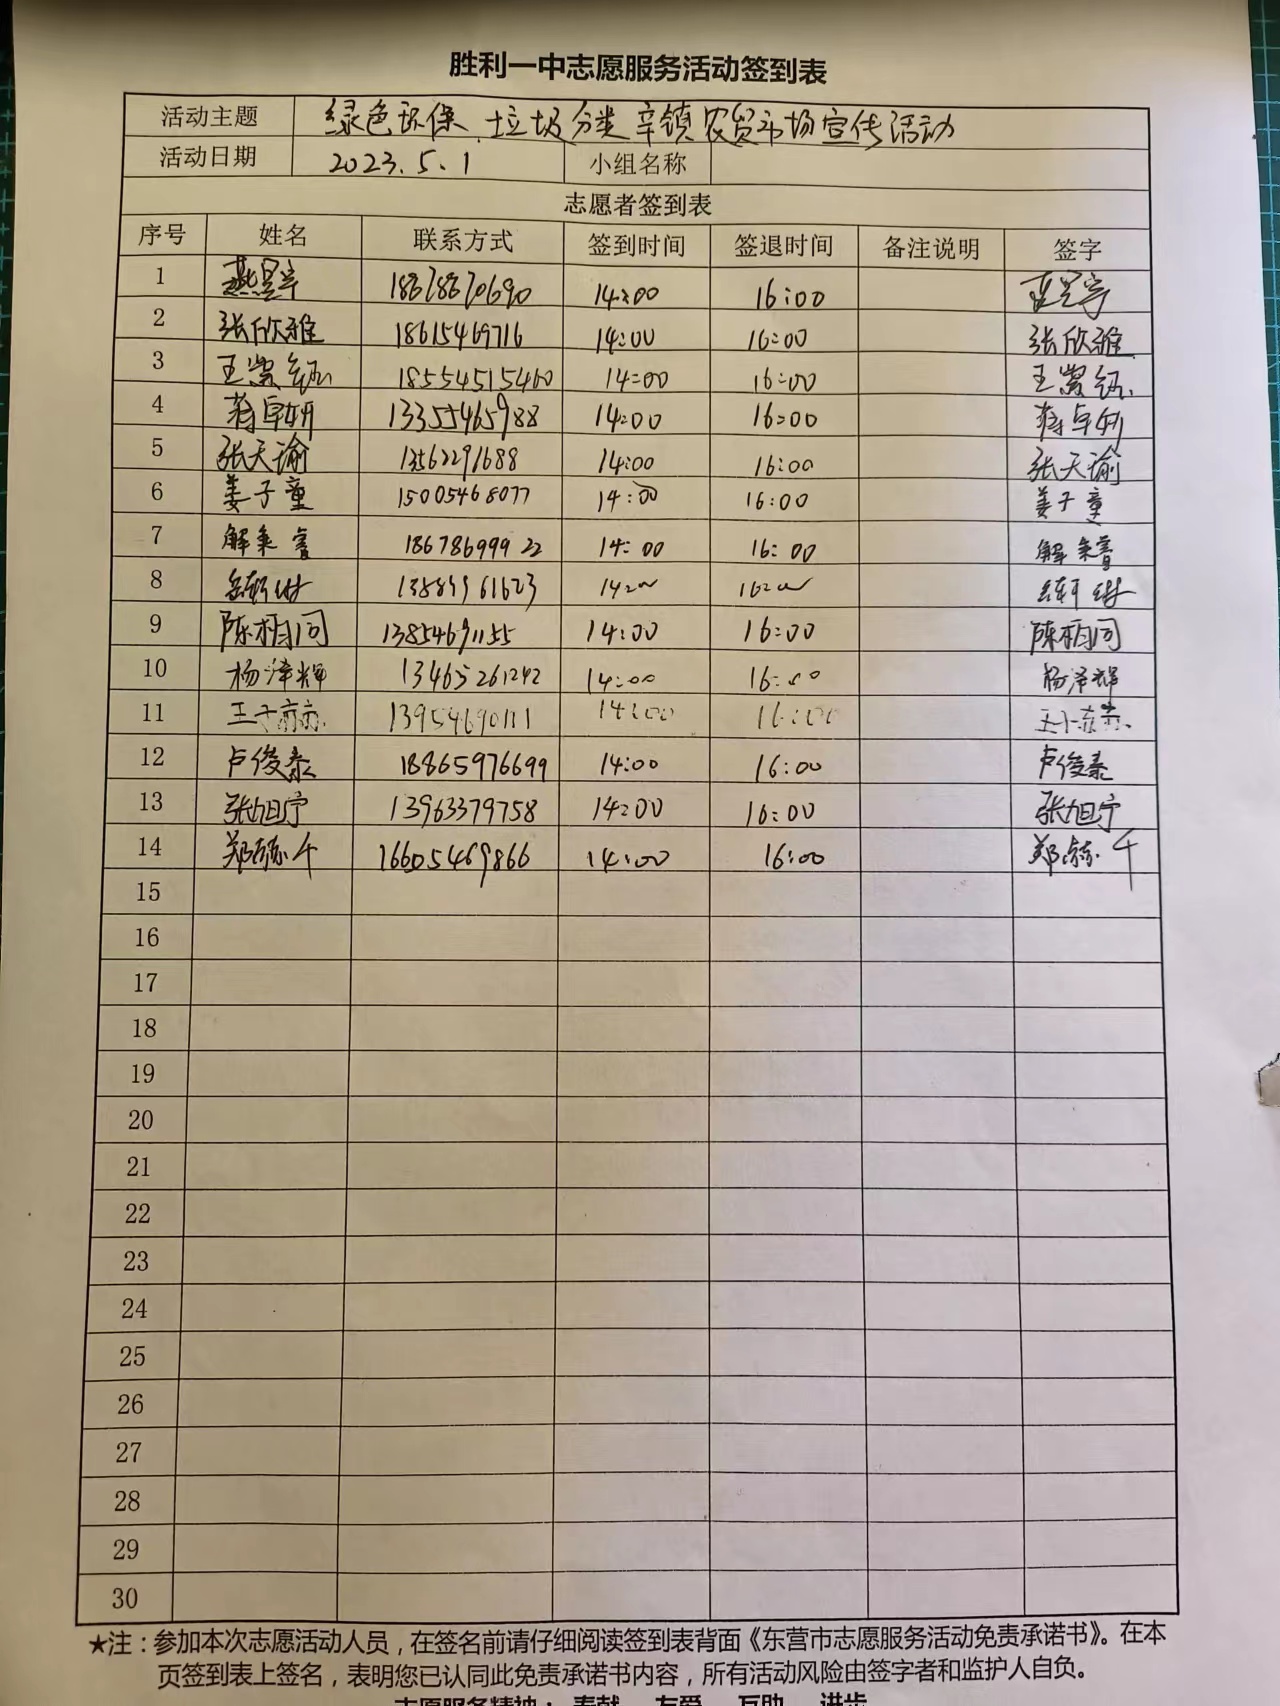 胜利一中志愿服务活动签到表
活动主题 绿色环保、垃圾分类辛镇农贸市场宣传活动
活动日期 2023.5.1 小组名称
志愿者签到表
序号 姓名 联系方式 签到时间 签退时间 备注说明 签字
1 燕昱宇 18678670690 14:00 16:00 燕昱宇
2 张欣雅 18615469716 14:00 16:00 张欣雅
3 18554515460 14:00 16:00
4 蒋卓妍 13355465988 14:00 16:00 蒋卓妍
5 张天谕 13562291688 14:00 16:00 张天谕
6 姜子童 15005468077 14:00 16:00 姜子童
7 解秉睿 18678699922 14:00 16:00 解秉睿
8 14:00 16:00
9 陈栩同 13854691155 14:00 16:00 陈栩同
10 杨泽辉 13465261242 14:00 16:00 杨泽辉
11 13954690111 14:00 16:00
12 卢俊泰 18865976699 14:00 16:00 卢俊泰
13 张旭宁 13963379758 14:00 16:00 张旭宁
14 16605469866 14:00 16:00
15
16
17
18
19
20
21
22
23
24
25
26
27
28
29
30
★注：参加本次志愿活动人员，在签名前请仔细阅读签到表背面《东营市志愿服务活动免责承诺书》。在本
页签到表上签名，表明您已认同此免责承诺书内容，所有活动风险由签字者和监护人自负。
志愿服务精神：奉献 友爱 互助 进步